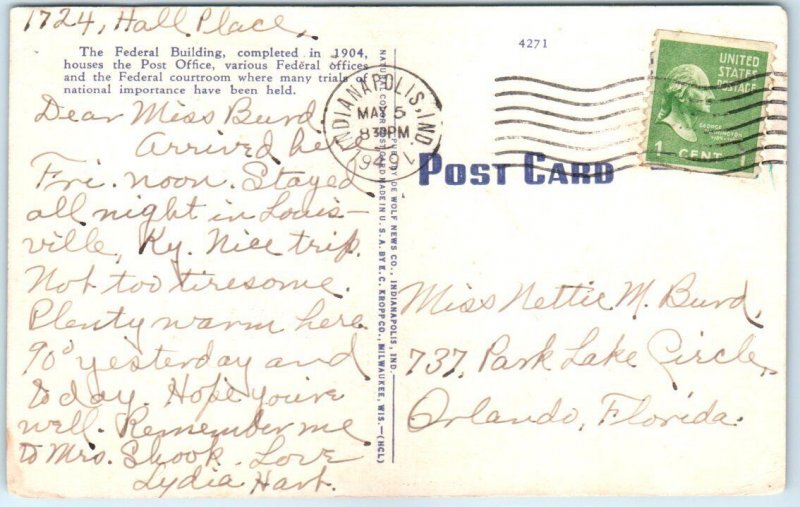 1724, Hall Place.
The Federal Building, completed in 1904,
houses the Post Office, various Federal offices
and the Federal courtroom where many trials of
national importance have been held.
Dear Miss Burd
Arrived here
Fri. noon. Stayed
all night in Louis-
ville, Ky. Nice trip.
Not too tiresome.
Plenty warm here
90° yesterday and
today. Hope you're
well. Remember me
to Mrs. Shook. Love
Lydia Hart.
NATURAL COLOR POST CARD MADE IN U.S.A. BY E. C. KROPP CO., MILWAUKEE, WIS.—(HCL)
PUB. BY DE WOLF NEWS CO., INDIANAPOLIS, IND.
INDIANAPOLIS, IND.
MAY 5
8 30 PM
1940
4271
UNITED
STATES
POSTAGE
GEORGE
WASHINGTON
1 CENT 1
POST CARD
Miss Nettie M. Burd,
737, Park Lake Circle,
Orlando, Florida.